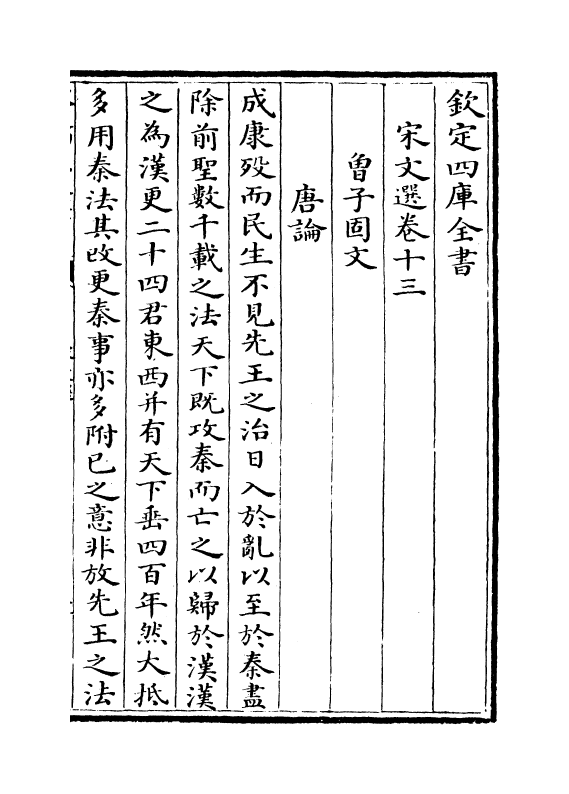 欽定四庫全書
宋文選卷十三
曾子固文
唐論
成康殁而民生不見先王之治日入於亂以至於秦盡
除前聖數千載之法天下既攻秦而亡之以歸於漢漢
之為漢更二十四君東西并有天下垂四百年然大抵
多用秦法其改更秦事亦多附已之意非放先王之法